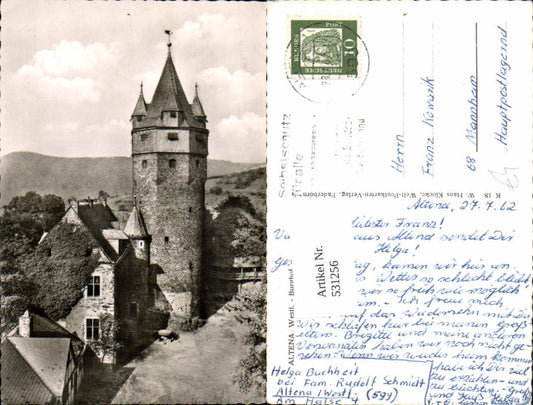 DEUTSCHE
BUNDESPOST
10
Selbstschutz
Herrn
Franz Kowarik
68 Mannheim
Hauptpostlagernd
K 18 W. Hans Klocke, Welt-Postkarten-Verlag, Paderborn
ALTENA Westf. - Burghof
Artikel Nr.
531256
Altena, 27.7.62
liebster Franz!
aus Altena sendet Dir
Helga!
kamen wir hier an,
Wetter so schlecht bleibt
wir so früh wie möglich
Ich freue mich
auf das Wiedersehn mit Dir
Wir schlafen hier bei meinen Groß
eltern. Brigitte und meine anderen
Verwandten haben wir noch nicht ge-
sehen. Wenn wir wieder heim kommen
habe ich Dir viel
zu erzählen und
zu
Gruß Helga
Helga Buchheit
bei Fam. Rudolf Schmidt
Altena (Westf.)
Am Halse 7
(599)